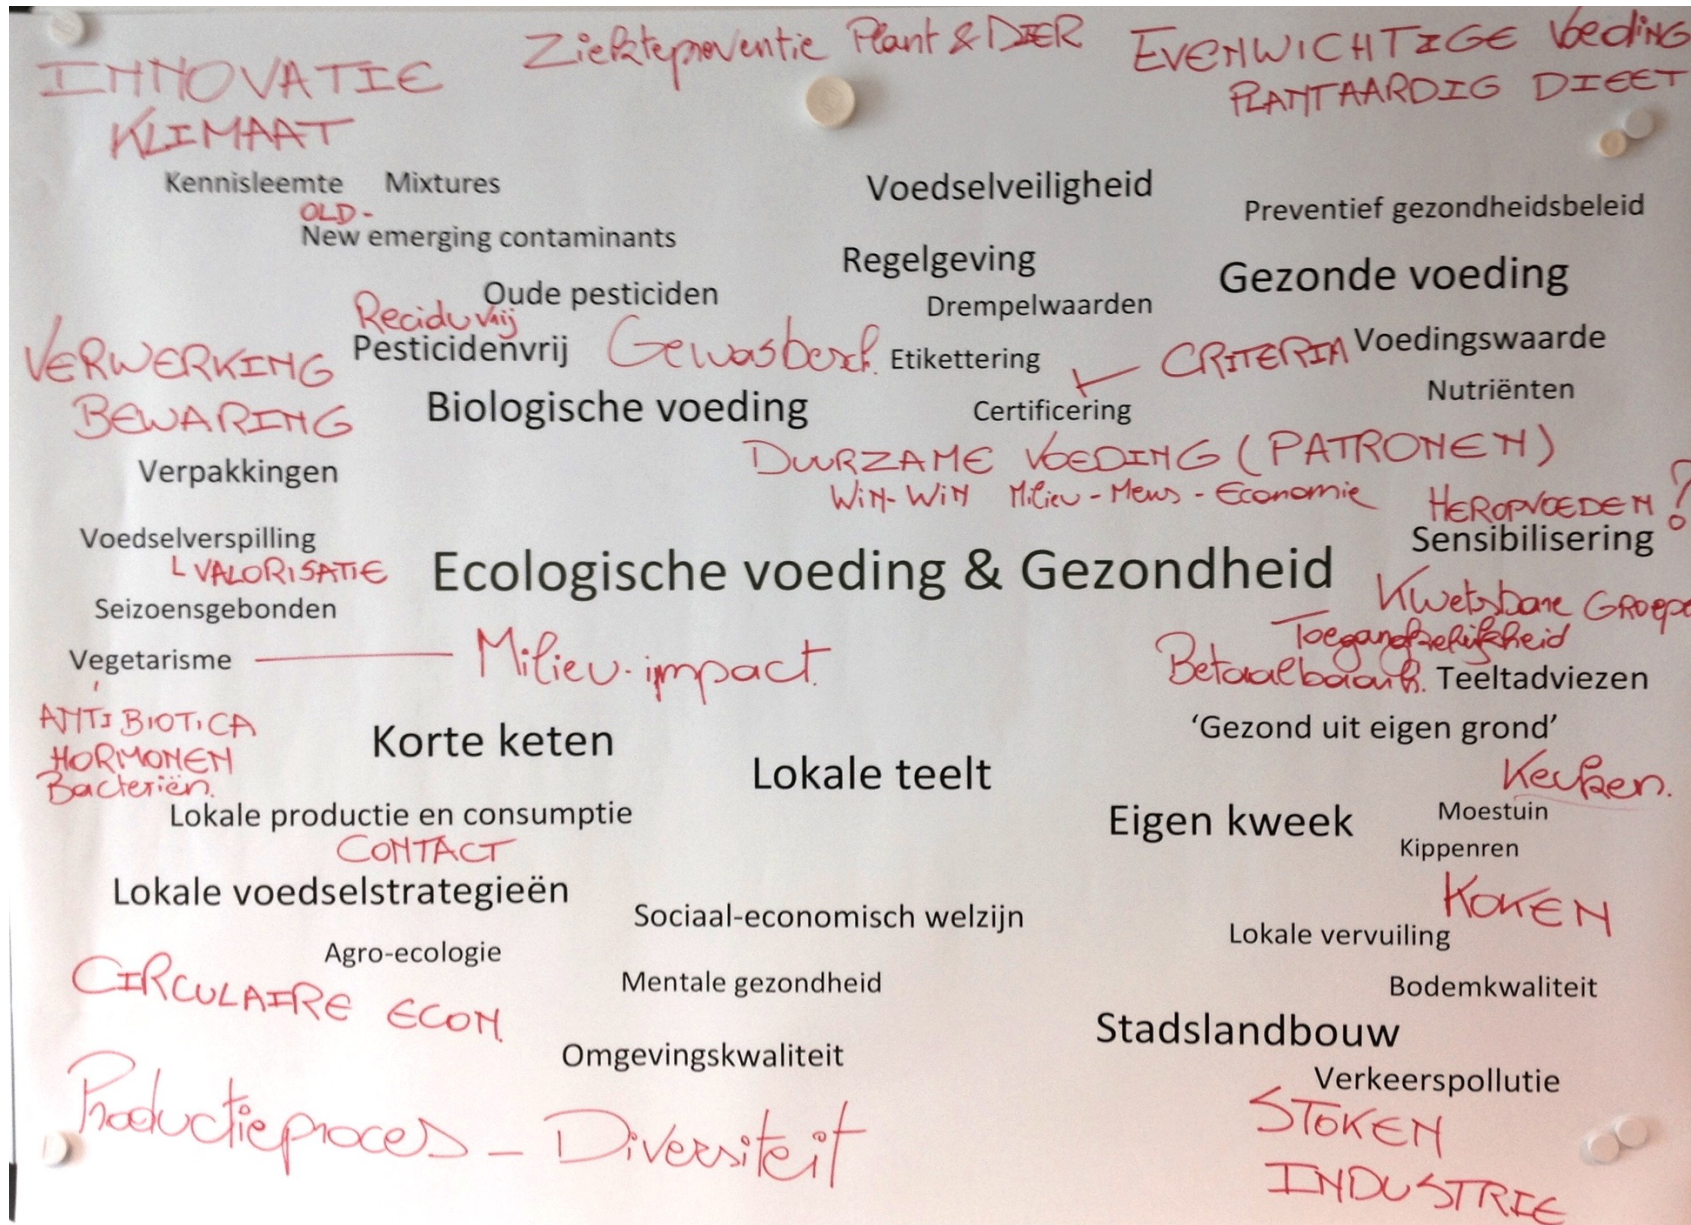 INNOVATIE
KLIMAAT
Ziektepreventie Plant & DIER
EVENWICHTIGE Voeding
PLANTAARDIG DIEET
Kennisleemte
Mixtures
OLD-
New emerging contaminants
Voedselveiligheid
Preventief gezondheidsbeleid
Regelgeving
Gezonde voeding
Oude pesticiden
Drempelwaarden
Reciduvrij
Pesticidenvrij
Gewasbesch.
Etikettering
CRITERIA
Voedingswaarde
VERWERKING
BEWARING
Biologische voeding
Certificering
Nutriënten
Verpakkingen
DUURZAME VOEDING (PATRONEN)
WiN-WiN Milieu - Mens - Economie
HEROPVOEDEN?
Sensibilisering
Voedselverspilling
VALORISATIE
Ecologische voeding & Gezondheid
Seizoensgebonden
Kwetsbare GROEPE
Toegangkelijkheid
Vegetarisme
Milieu-impact.
Betaalbaarh.
Teeltadviezen
ANTIBIOTICA
HORMONEN
Bacteriën.
Korte keten
Lokale teelt
‘Gezond uit eigen grond’
Keuken.
Lokale productie en consumptie
CONTACT
Eigen kweek
Moestuin
Kippenren
Lokale voedselstrategieën
KOKEN
Sociaal-economisch welzijn
Lokale vervuiling
Agro-ecologie
CIRCULAIRE ECON.
Mentale gezondheid
Bodemkwaliteit
Stadslandbouw
Omgevingskwaliteit
Verkeerspollutie
Productieproces - Diversiteit
STOKEN
INDUSTRIE